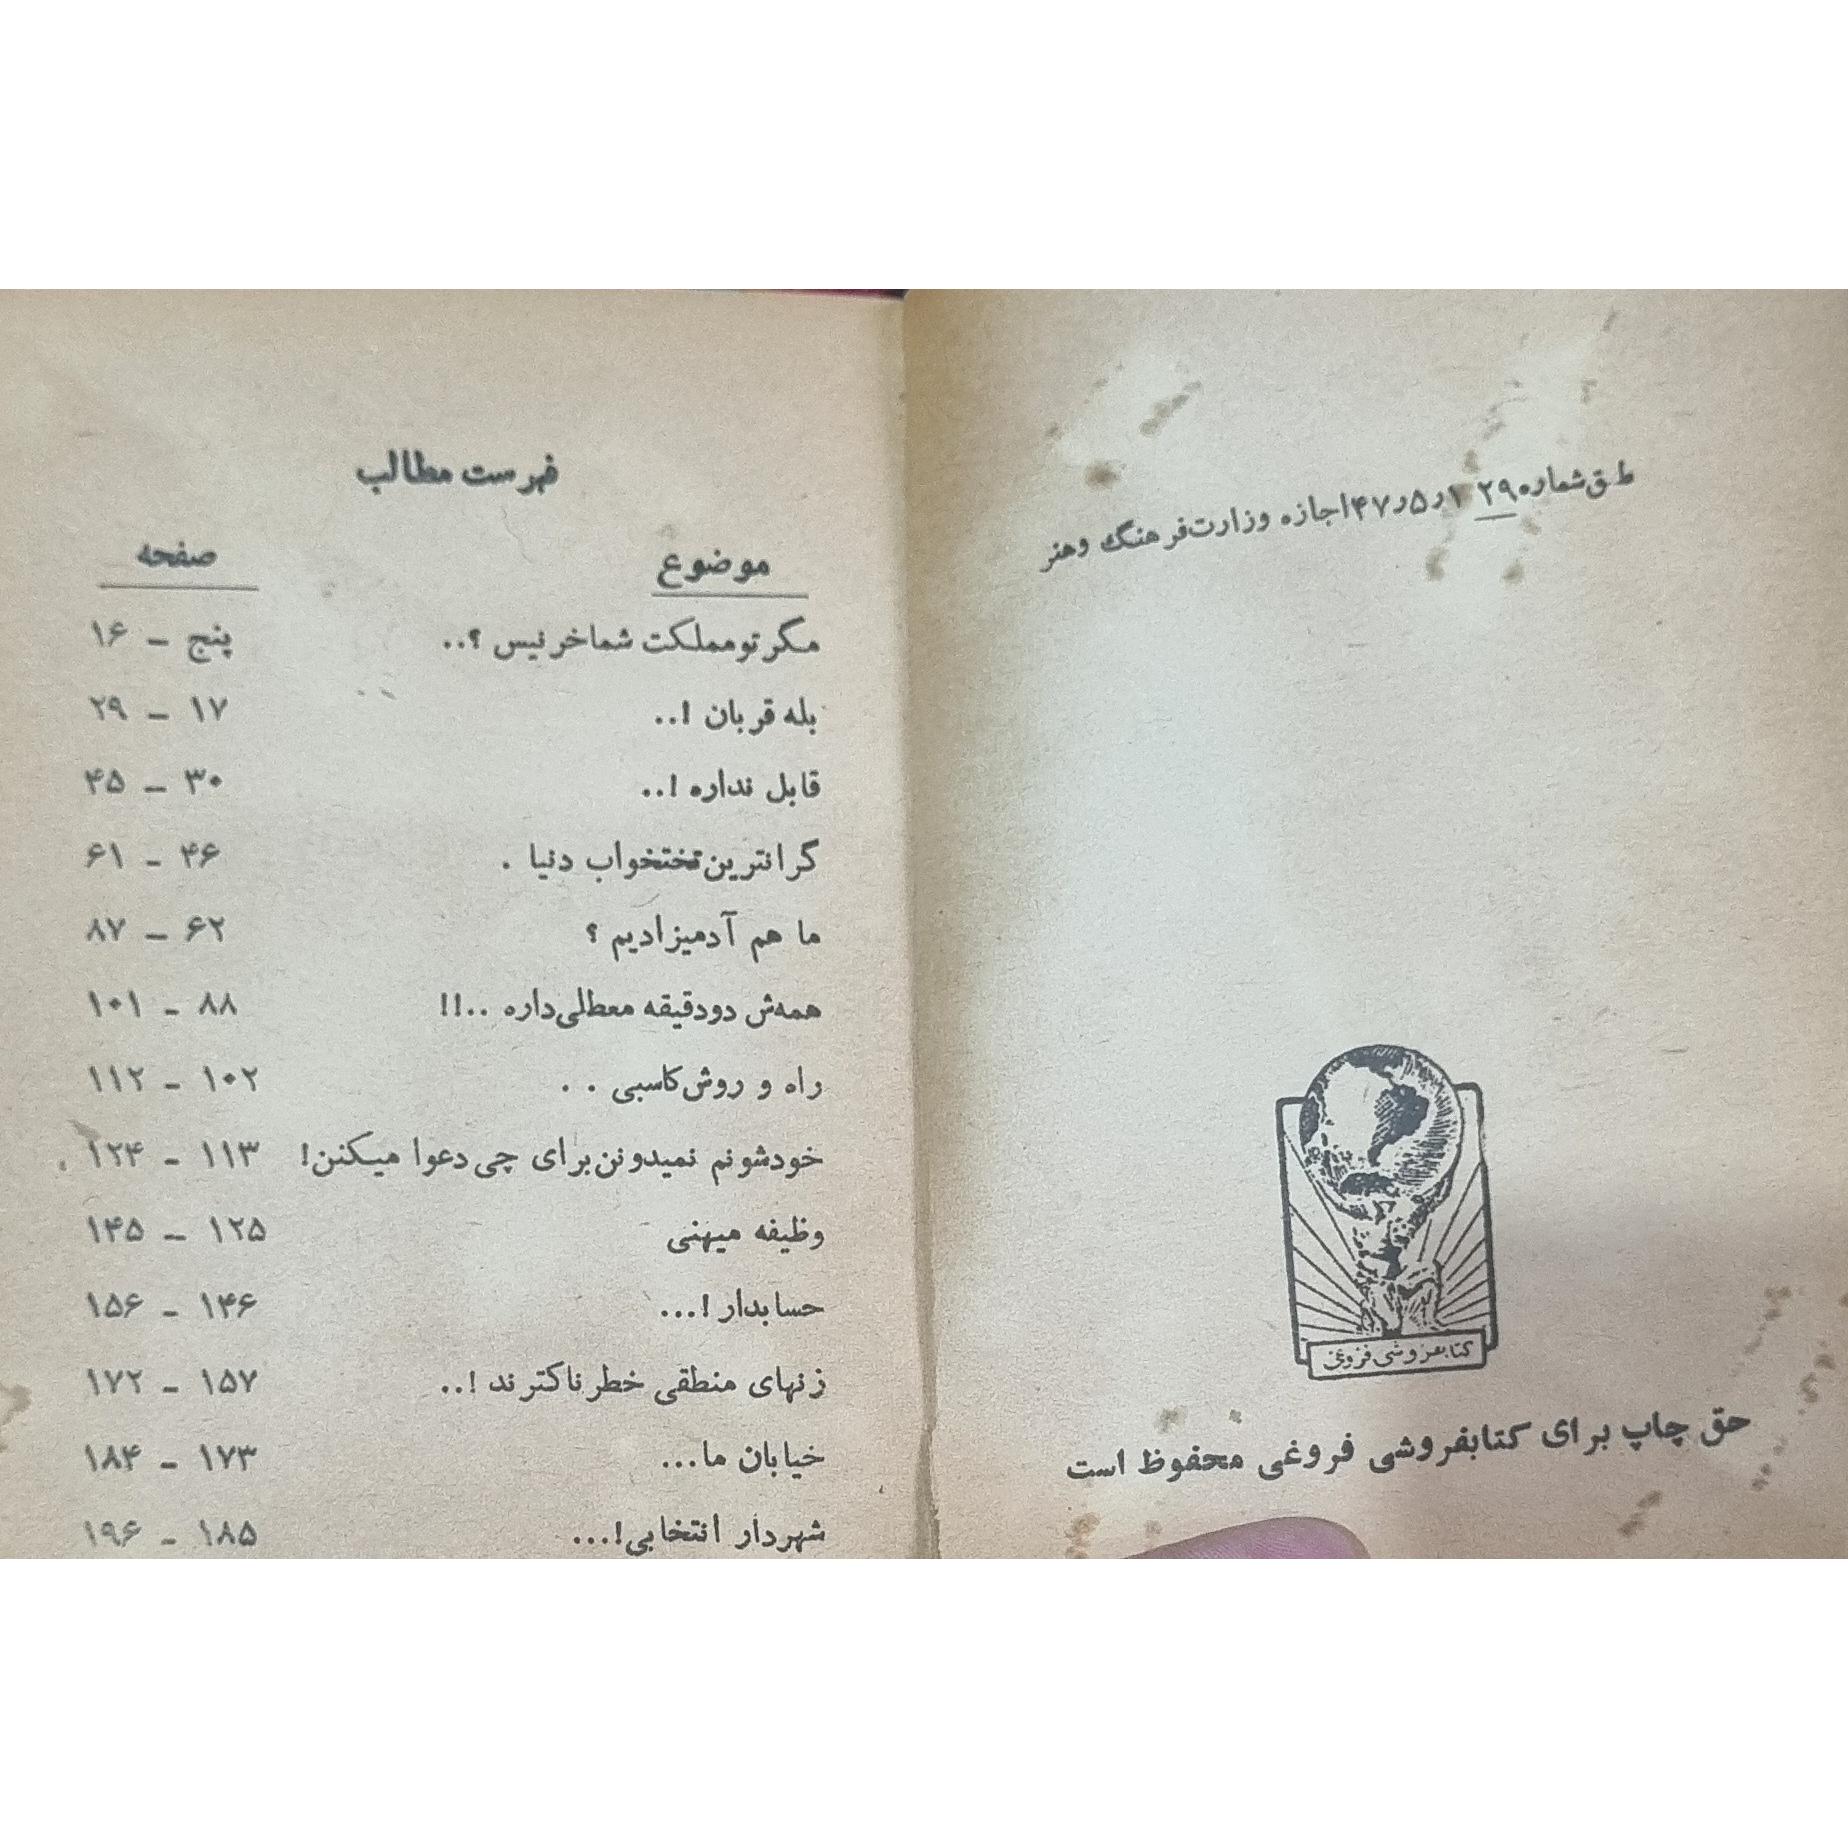 ط.ق شماره ۲۹ ۱ر۵ر۴۷ اجازه وزارت فرهنگ و هنر
کتابفروشی فروغی
حق چاپ برای کتابفروشی فروغی محفوظ است
فهرست مطالب
موضوع صفحه
مگر تو مملکت شما خر نیس ؟.. پنج – ۱۶
بله قربان !.. ۱۷ – ۲۹
قابل نداره !.. ۳۰ – ۴۵
گرانترین تختخواب دنیا . ۴۶ – ۶۱
ما هم آدمیزادیم ؟ ۶۲ – ۸۷
همه‌ش دودقیقه معطلی داره ..!! ۸۸ – ۱۰۱
راه و روش کاسبی . . ۱۰۲ – ۱۱۲
خودشونم نمیدونن برای چی دعوا میکنن! ۱۱۳ – ۱۲۴
وظیفه میهنی ۱۲۵ – ۱۴۵
حسابدار !... ۱۴۶ – ۱۵۶
زنهای منطقی خطرناکترند !.. ۱۵۷ – ۱۷۲
خیابان ما... ۱۷۳ – ۱۸۴
شهردار انتخابی!... ۱۸۵ – ۱۹۶